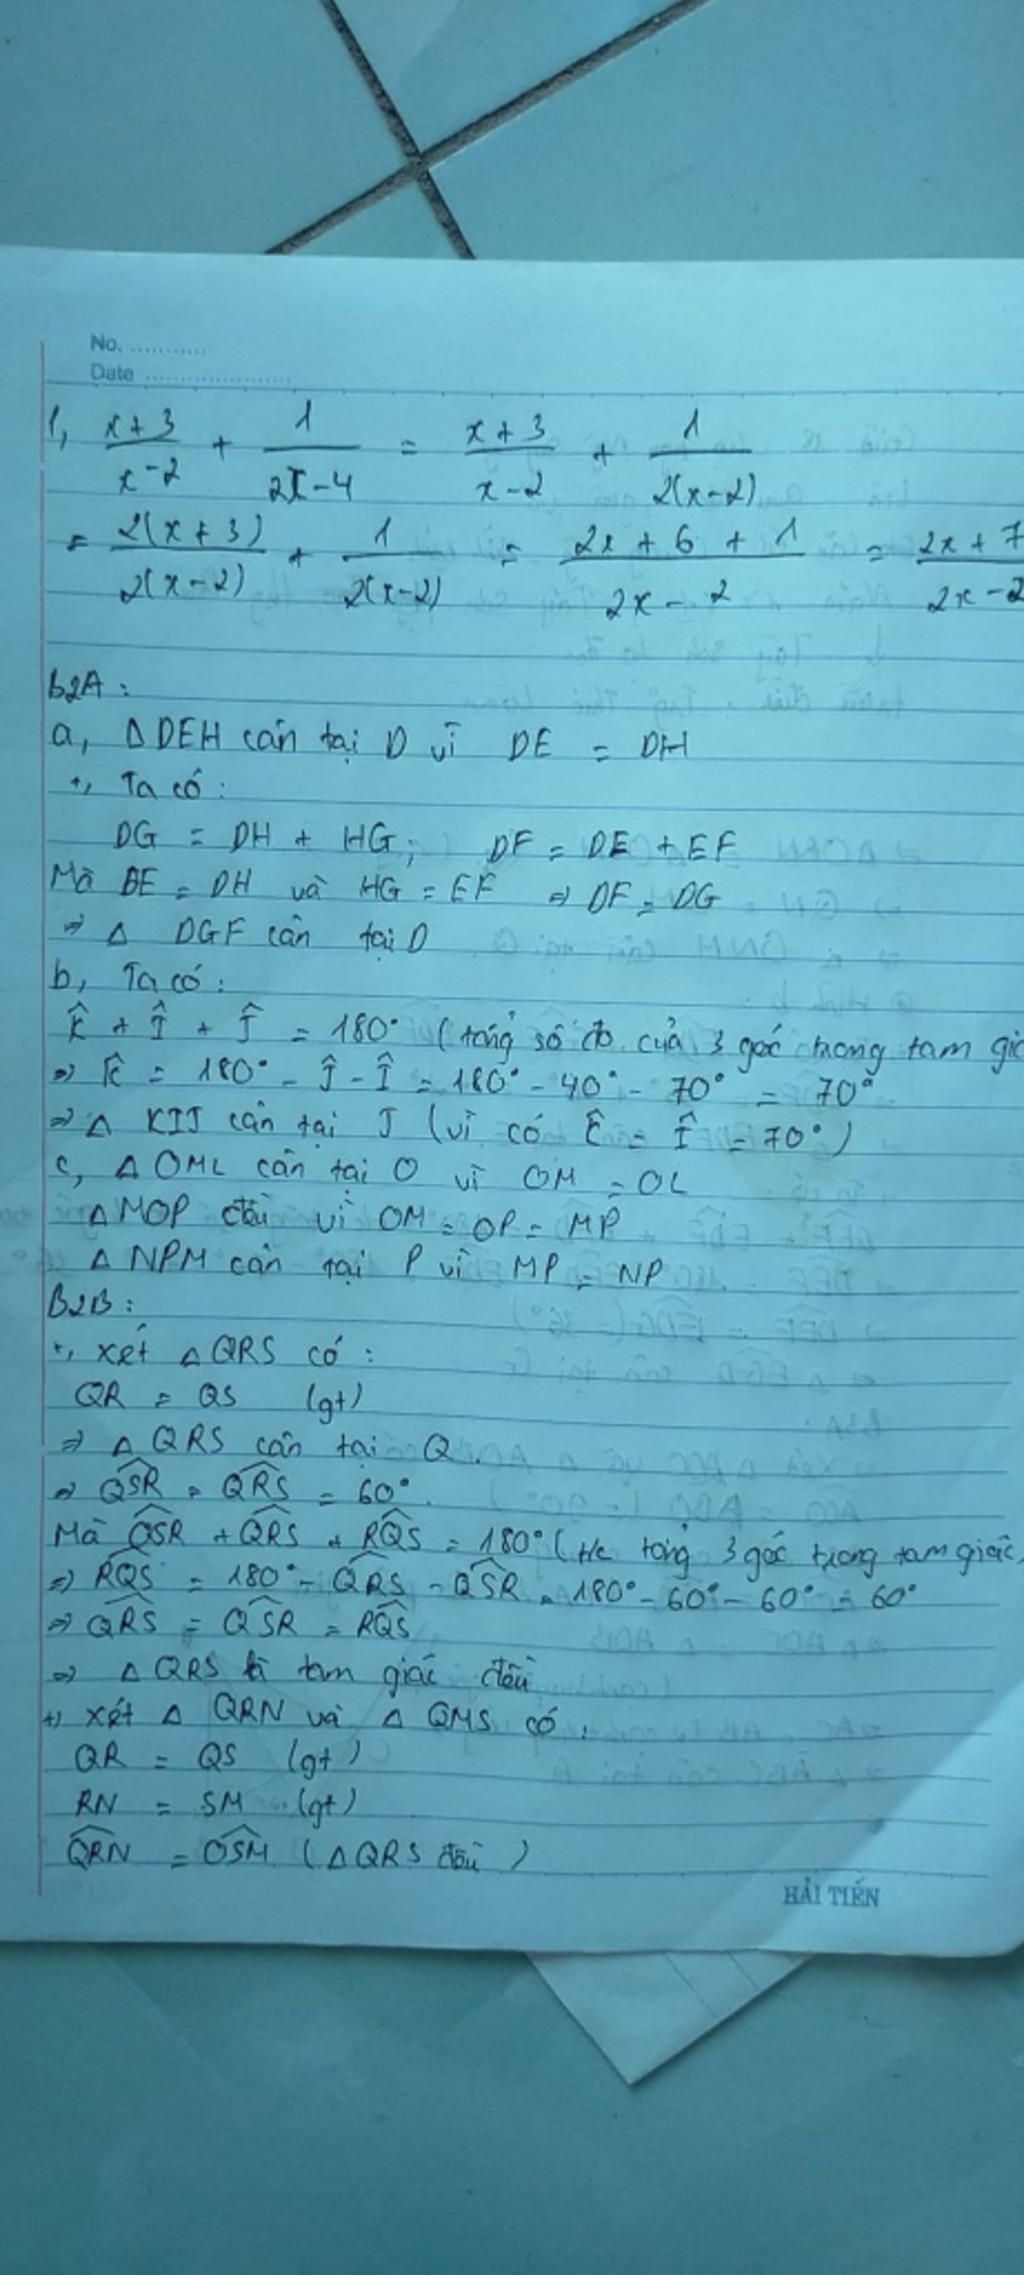 No. ...........
Date .....................
1, x+3/x-2 + 1/2x-4 = x+3/x-2 + 1/2(x-2)
= 2(x+3)/2(x-2) + 1/2(x-2) = 2x+6+1/2x-2 = 2x+7/2x-2
B2A:
a, Δ DEH cân tại D vì DE = DH
+, Ta có:
DG = DH + HG; DF = DE + EF
Mà DE = DH và HG = EF ⇒ DF = DG
⇒ Δ DGF cân tại D
b, Ta có:
K̂ + Î + Ĵ = 180° (tổng số đo của 3 góc trong tam giá
⇒ K̂ = 180° - Ĵ - Î = 180° - 40° - 70° = 70°
⇒ Δ KIJ cân tại J (vì có K̂ = Î = 70°)
c, Δ OML cân tại O vì OM = OL
Δ MOP đều vì OM = OP = MP
Δ NPM cân tại P vì MP = NP
B2B:
+, xét Δ QRS có:
QR = QS (gt)
⇒ Δ QRS cân tại Q
⇒ QSR = QRS = 60°
Mà QSR + QRS + RQS = 180° (tổng 3 góc trong tam giác)
⇒ RQS = 180° - QRS - QSR = 180° - 60° - 60° = 60°
⇒ QRS = QSR = RQS
⇒ Δ QRS là tam giác đều
+, xét Δ QRN và Δ QMS có:
QR = QS (gt)
RN = SM (gt)
QRN = QSM (Δ QRS đều)
HẢI TIẾN